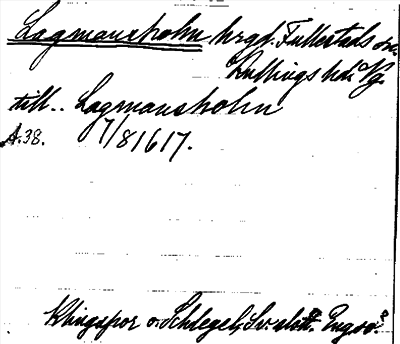 Lagmansholm hrgd. Fullestads sn.
Kullings hd. Vg.
till.. Lagmansholm
A.38. 7/8 1617.
Klingspor o. Schlegel, Sv. slott. Engsö.